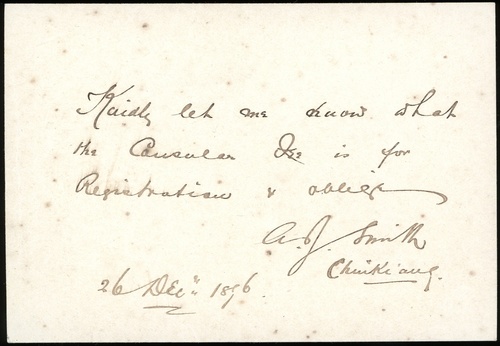 Kindly let me know what
the Consular Fee is for
Registration & oblige
A. J. Smith
Chinkiang.
26 Decr 1896.